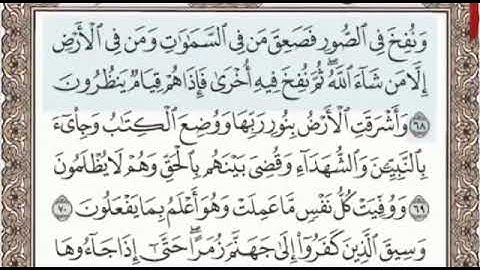 وَنُفِخَ فِي ٱلصُّورِ فَصَعِقَ مَن فِي ٱلسَّمَٰوَٰتِ وَمَن فِي ٱلْأَرْضِ
إِلَّا مَن شَآءَ ٱللَّهُ ۖ ثُمَّ نُفِخَ فِيهِ أُخْرَىٰ فَإِذَا هُمْ قِيَامٌ يَنظُرُونَ
٦٨ وَأَشْرَقَتِ ٱلْأَرْضُ بِنُورِ رَبِّهَا وَوُضِعَ ٱلْكِتَٰبُ وَجِا۟ىٓءَ
بِٱلنَّبِيِّـۧنَ وَٱلشُّهَدَآءِ وَقُضِىَ بَيْنَهُم بِٱلْحَقِّ وَهُمْ لَا يُظْلَمُونَ
٦٩ وَوُفِّيَتْ كُلُّ نَفْسٍ مَّا عَمِلَتْ وَهُوَ أَعْلَمُ بِمَا يَفْعَلُونَ ٧٠
وَسِيقَ ٱلَّذِينَ كَفَرُوٓا۟ إِلَىٰ جَهَنَّمَ زُمَرًا ۖ حَتَّىٰٓ إِذَا جَآءُوهَا